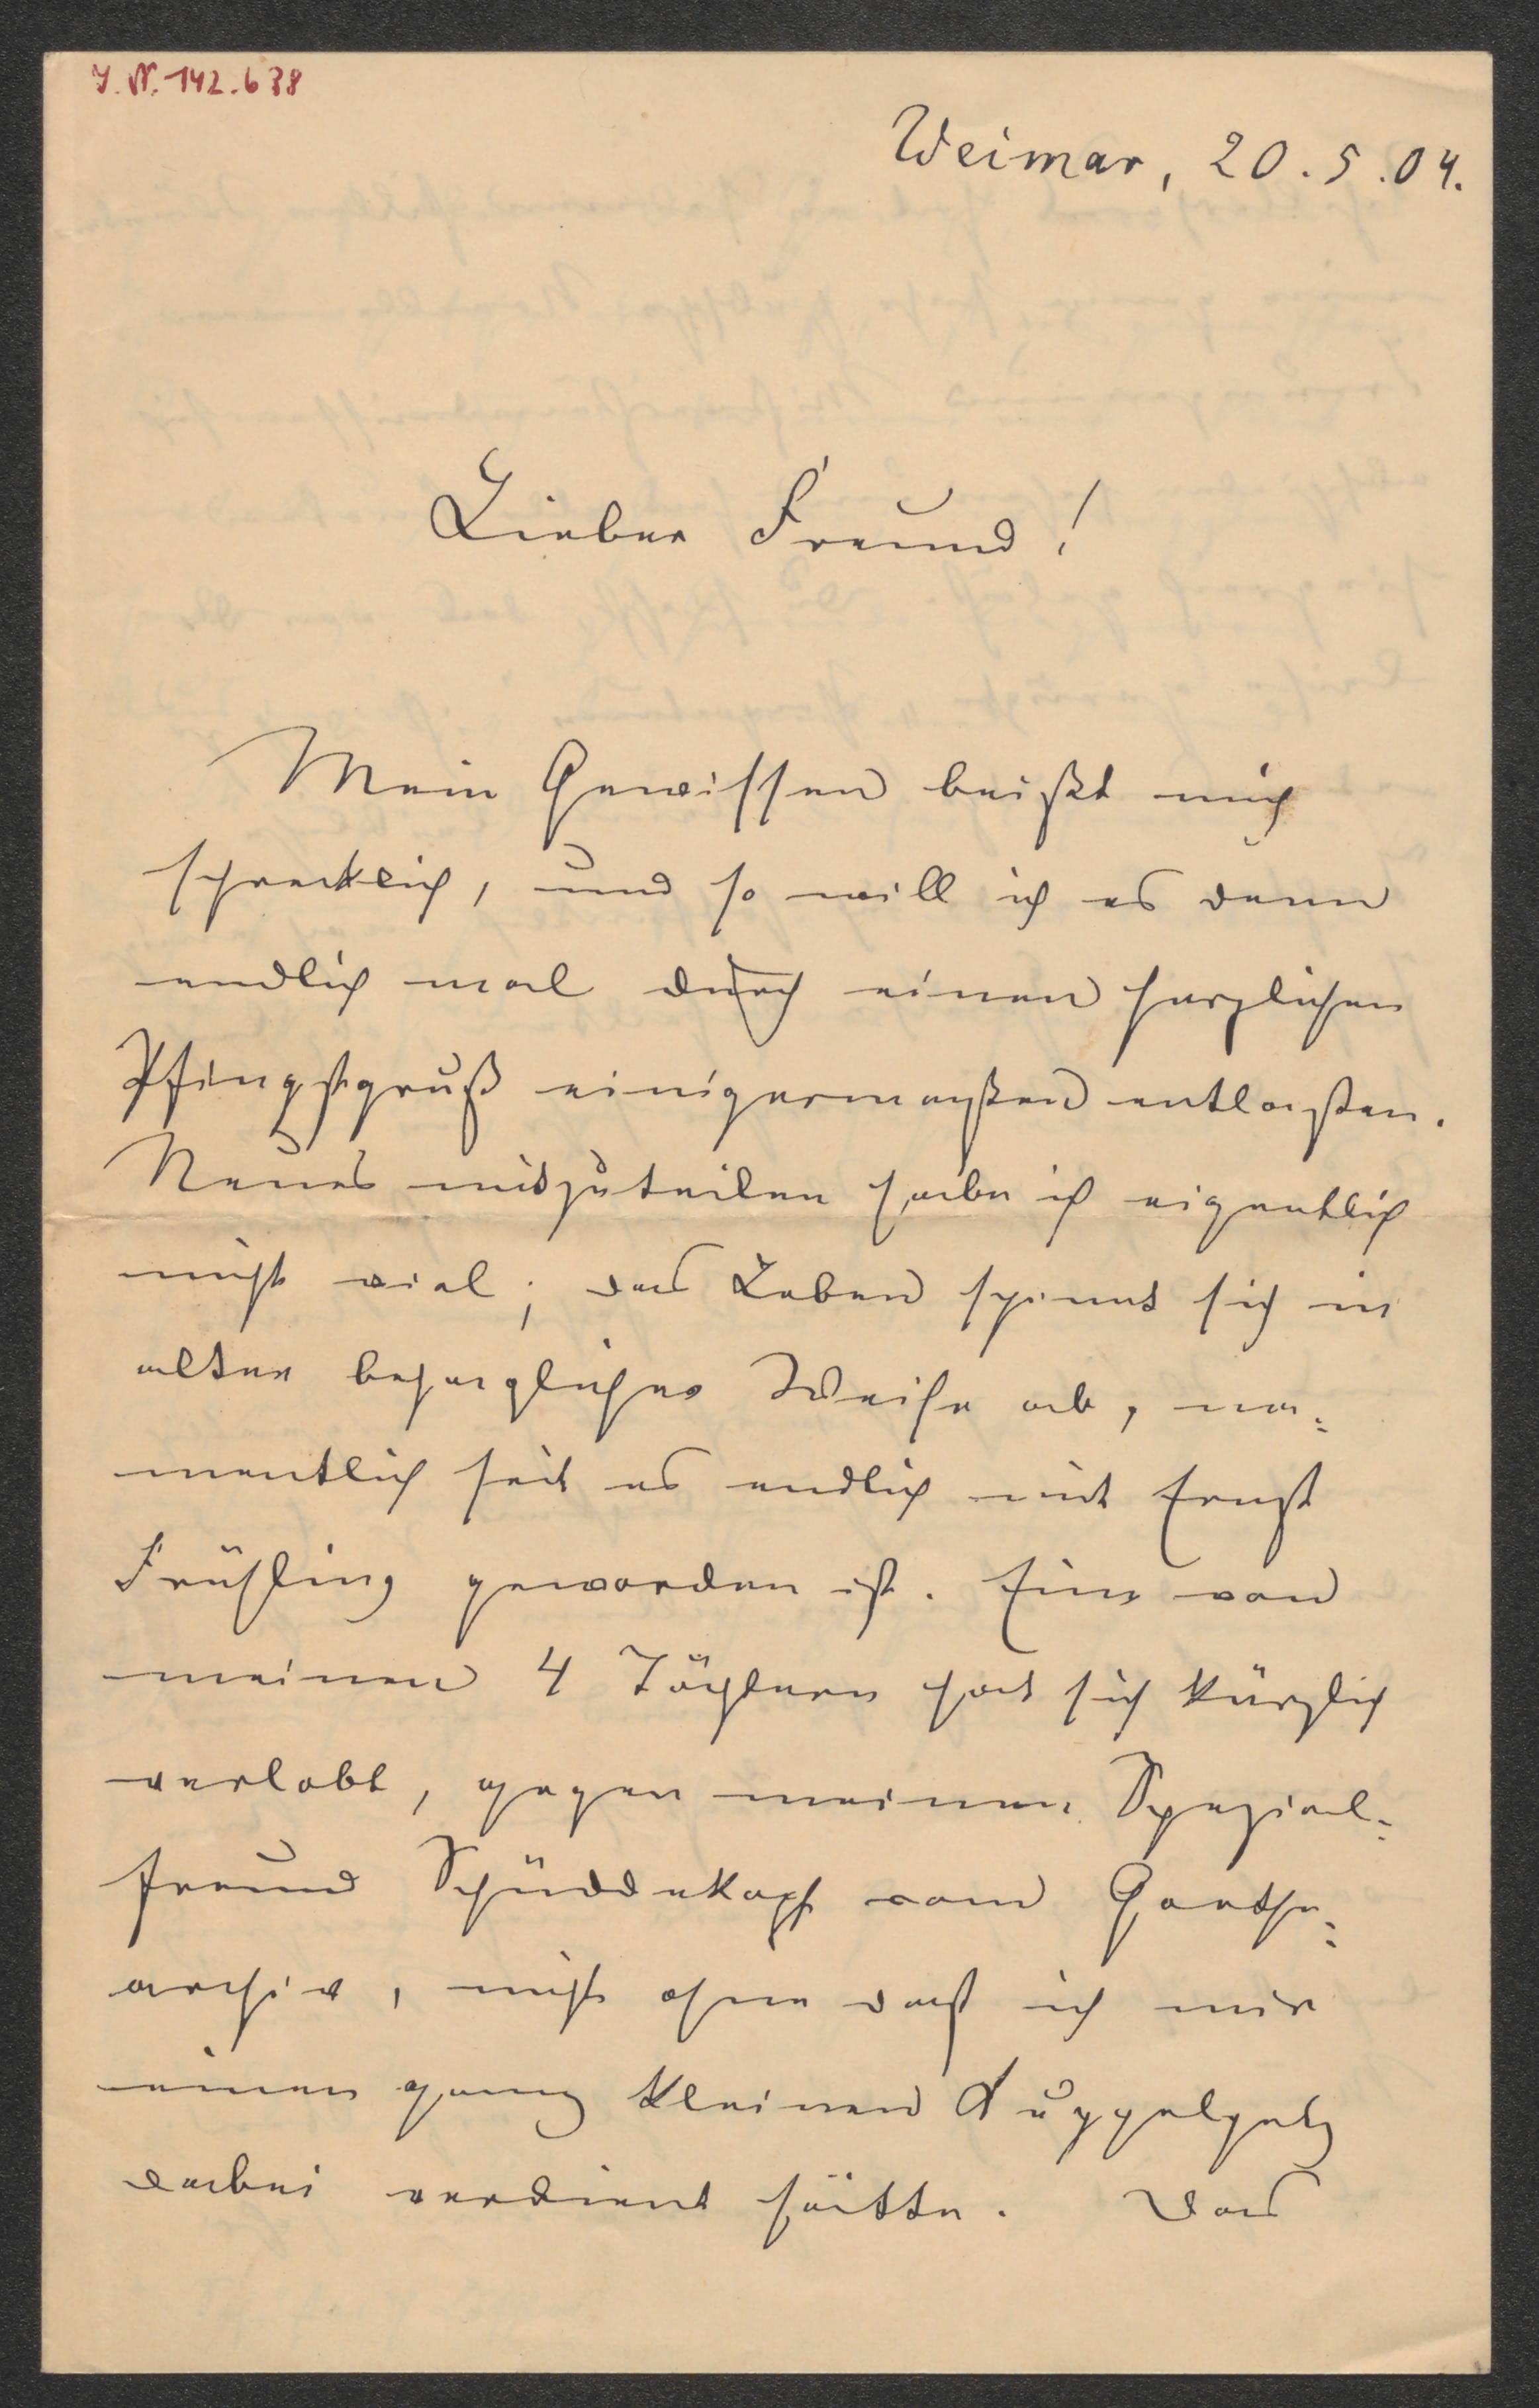 J.N. 142.638
Weimar, 20.5.04.
Lieber Freund!
Mein Gewissen beißt mich
schrecklich, und so will ich es denn
endlich mal durch einen herzlichen
Pfingstgruß einigermaßen entlasten.
Neues mitzuteilen habe ich eigentlich
nicht viel; das Leben spinnt sich in
alter behaglicher Weise ab, na=
mentlich seit es endlich mit Ernst
Frühling geworden ist. Eine von
meinen 4 Töchtern hat sich kürzlich
verlobt, gegen meinen Spezial=
freund Schüddekopf vom Goethe=
archiv, nicht ohne daß ich mir
einen ganz kleinen Kuppelpelz
dabei verdient hätte. Das